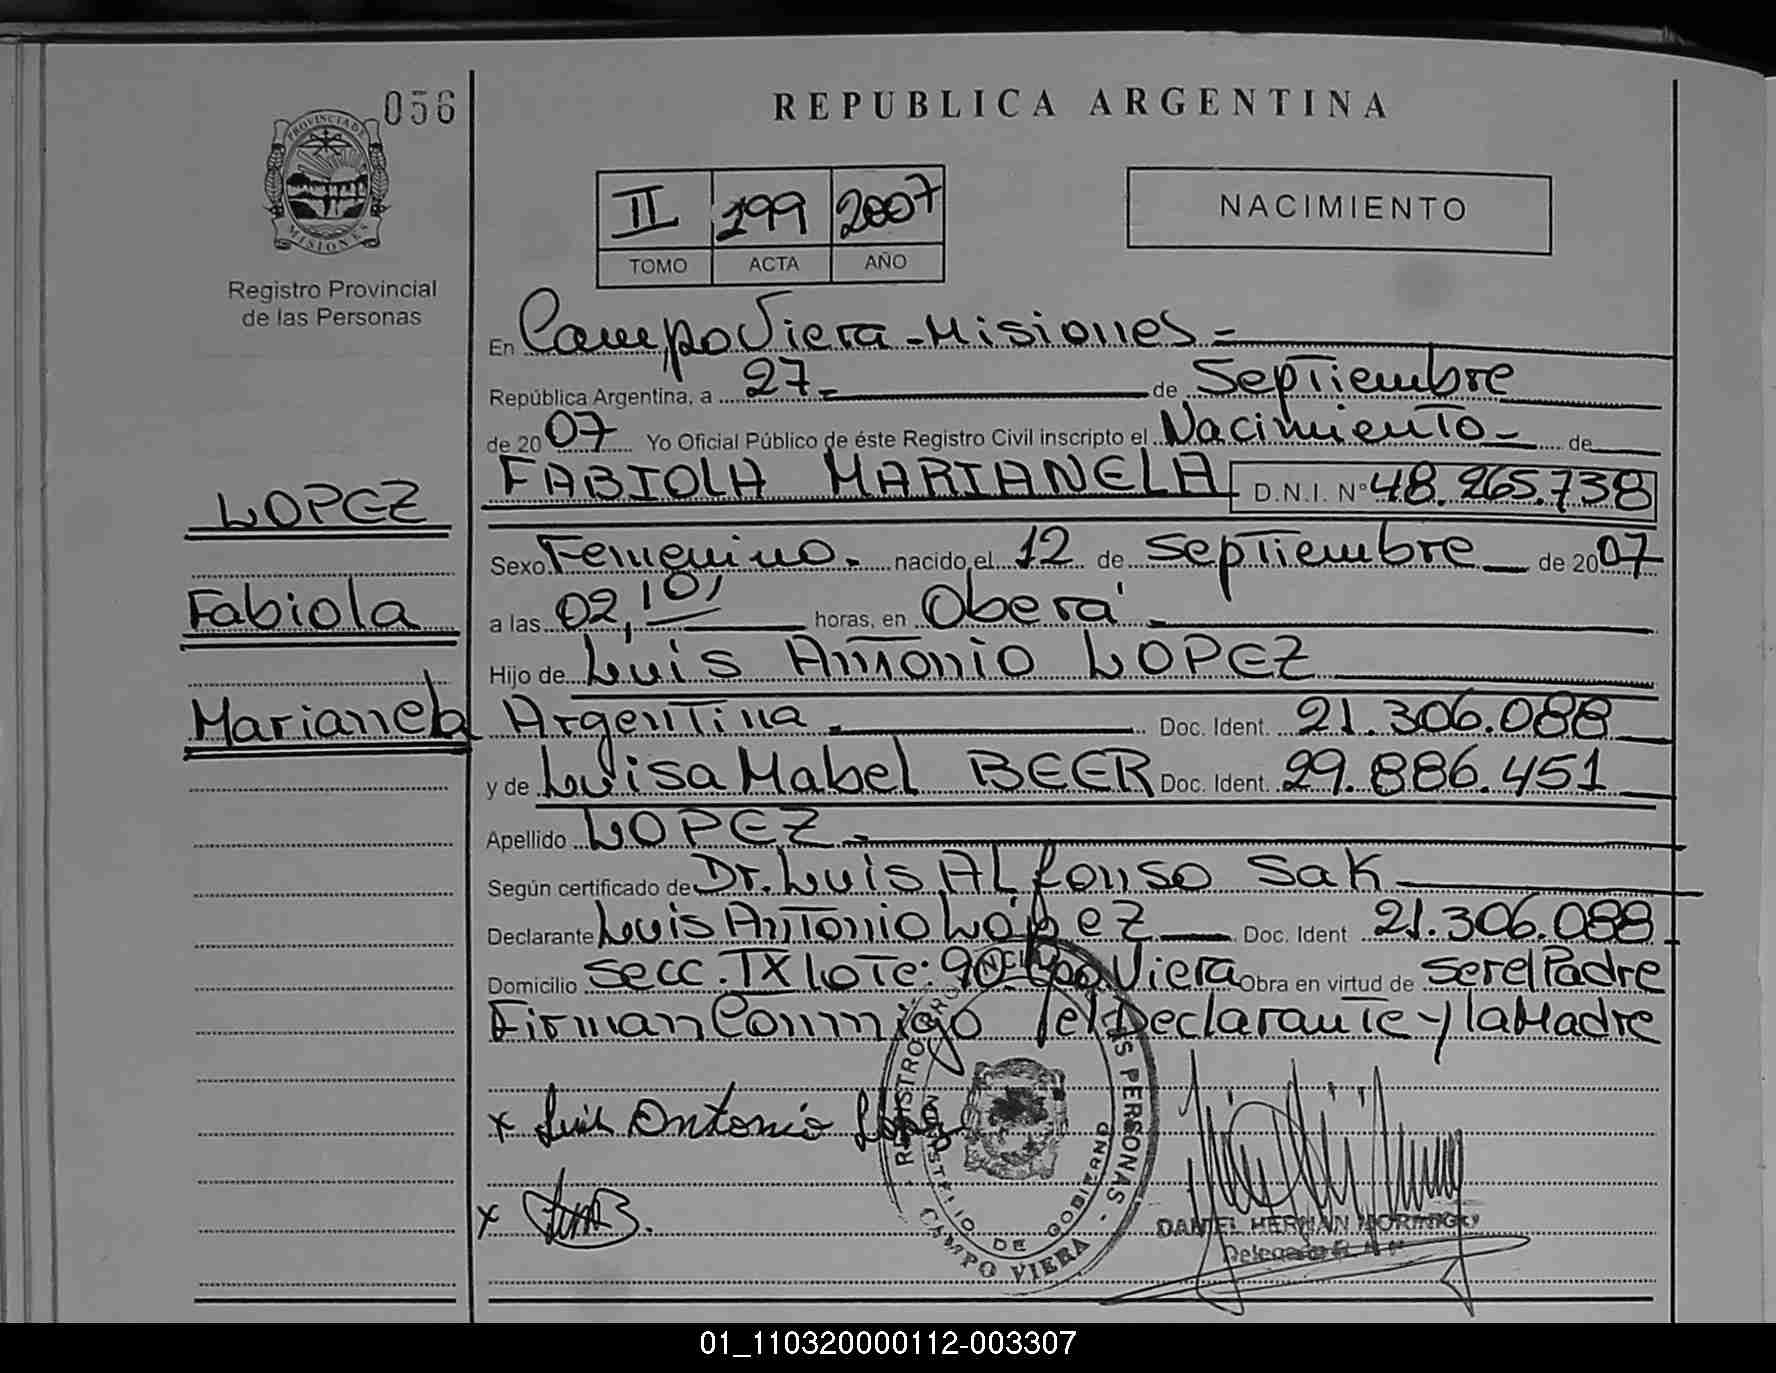 056
REPUBLICA ARGENTINA
PROVINCIA DE
MISIONES
Registro Provincial
de las Personas
II 199 2007
TOMO ACTA AÑO
NACIMIENTO
En Campo Viera - Misiones =
República Argentina, a 27 - de Septiembre
de 2007 Yo Oficial Público de éste Registro Civil inscripto el Nacimiento - de
FABIOLA MARIANELA D.N.I. N° 48.265.738
LOPEZ
Fabiola
Marianela
Sexo Femenino. nacido el 12 de Septiembre de 2007
a las 02,10, horas, en Oberá
Hijo de Luis Antonio LOPEZ
Argentina Doc. Ident. 21.306.088
y de Luisa Mabel BEER Doc. Ident. 29.886.451
Apellido LOPEZ
Según certificado de Dr. Luis Alfonso Sak
Declarante Luis Antonio López Doc. Ident 21.306.088
Domicilio Secc. IX Lote: 90. Cpo Viera Obra en virtud de ser el Padre
Firman Conmigo el Declarante y la Madre
x Luis Antonio Lopez
x
REGISTRO PERSONAS
MINISTERIO DE GOBIERNO
CAMPO VIERA
DANIEL HERNAN
Delegado
01_110320000112-003307